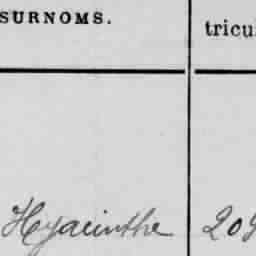 SURNOMS.
tricu
Hyacinthe 209